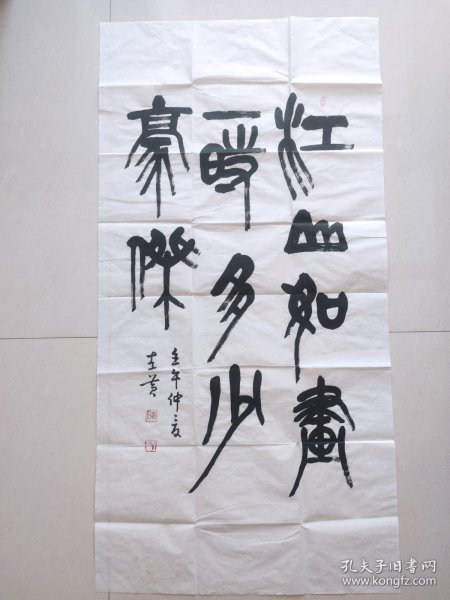 江山如畫
一時多少
豪傑
壬午仲夏
孔夫子旧书网
www.kongfz.com